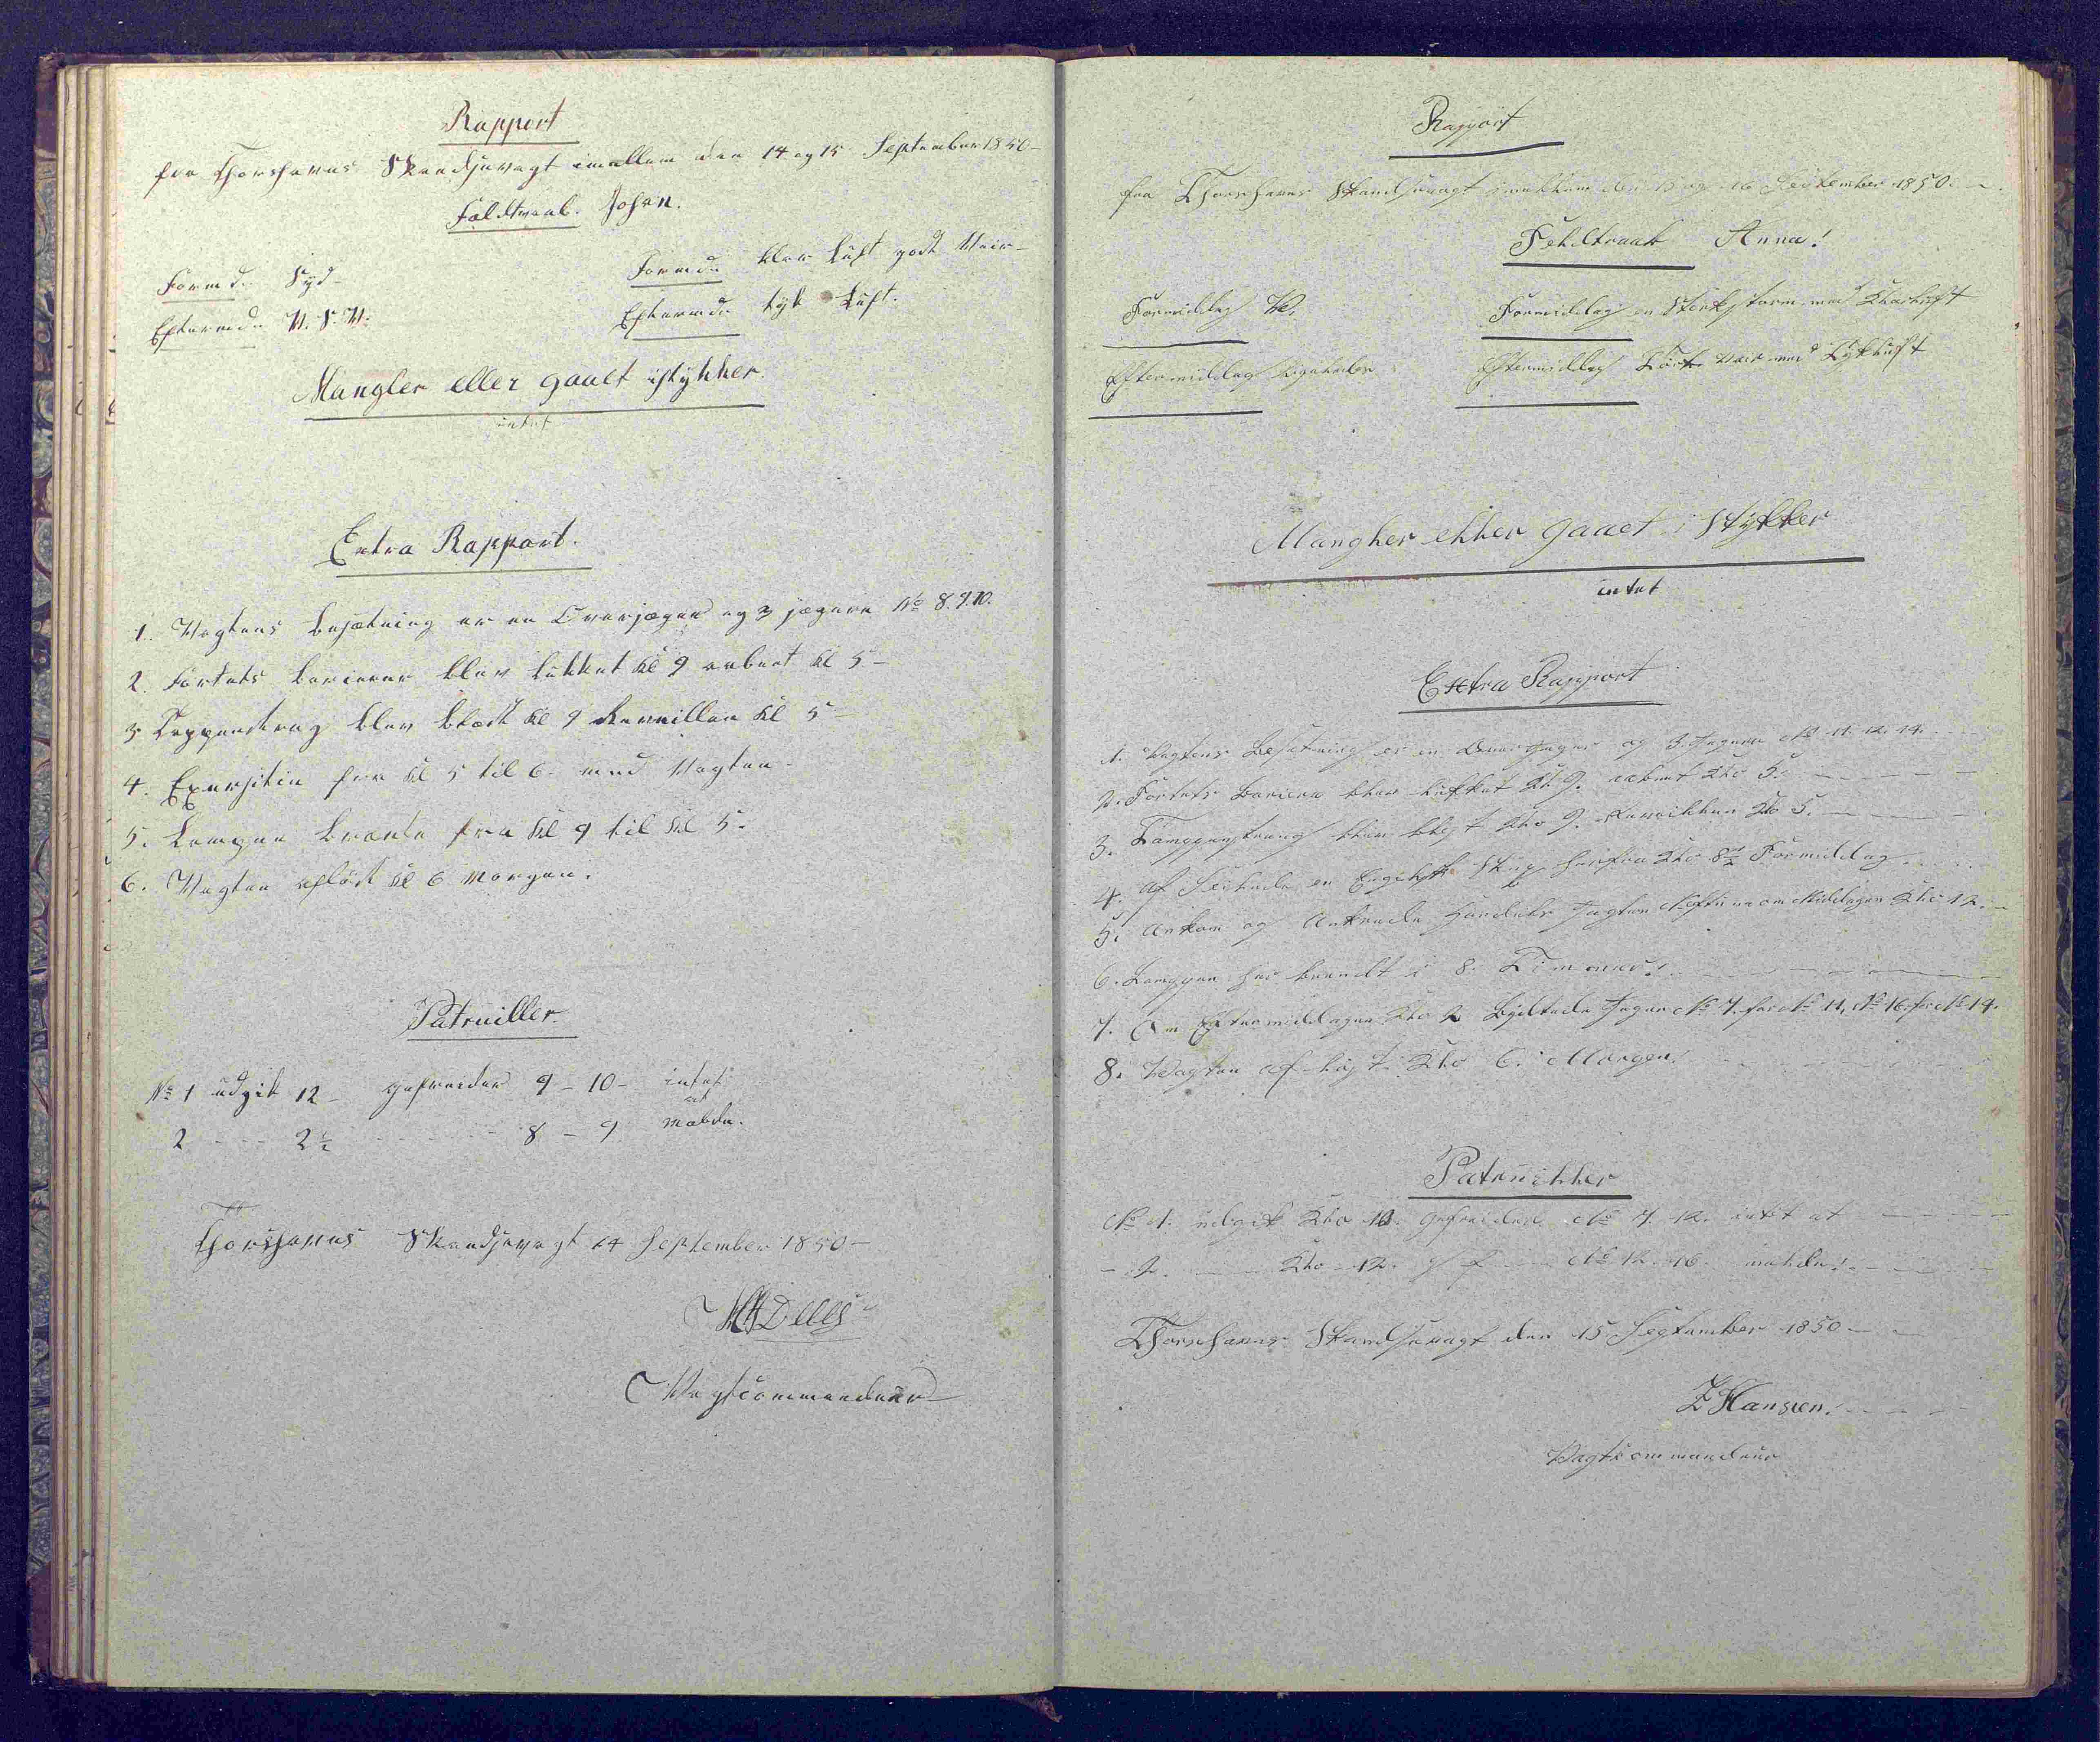 Rapport
fra Thorshavns Skandsevagt imellem den 14 og 15 September 1850 –
Feldtraab. Johan.
Formd: Syd –
Formd: klar Luft godt Veir –
Eftermd: V. S. V.
Eftermd: tyk Luft.
Mangler eller gaaet istykker.
intet
Extra Rapport.
1. Vagtens besætning er en Overjæger og 3 jægere No 8. 9. 10.
2. Fortets barierer blev lukket Kl 9 aabnet Kl 5 –
3 Tappenstreg blev blæst Kl 9 Reveillen Kl 5 –
4. Exersitie fra Kl 5 til 6 – med Vagten –
5. Lampen brænte fra Kl 9 til Kl 5.
6. Vagten afløst Kl 6 Morgen.
Patruiller.
No 1 udgik 12 – gefreider 9 – 10 – intet
at
2 – – – 2½ – – – – 8 – 9 melde.
Thorshavns Skandsevagt 14 September 1850 –
Vagtcommandeur
Rapport
fra Thorshavns Skandsevagt imellem den 15 og 16 September 1850. –
Feldtraab Anna!
Formiddag V.
Formiddag en Sterk storm med Klarluft
Eftermiddag ligeledes
Eftermiddag Tört Veir med Tykluft
Mangler eller gaaet i Stykker
intet
Extra Rapport
1. Vagtens Besætning er en Overjæger og 3 Jægere No 11. 12. 14.
2. Fortets Bariere blev lukket Kl 9. aabnet Klo 5. –
3. Tappenstreg blev blæst Klo 9. Reveillen Klo 5. –
4. Af Seilede en Engelsk Skip herfra Klo 8½ Formiddag.
5. Ankom og Ankrede Handels Jagten om Middagen Klo 12. –
6. Lampen har brændt i 8. Timmer! –
7. Om Eftermiddagen Klo 2 Byttede Jæger No 7. for No 11, No 16. for No 14.
8. Vagten af löst Klo 6. Morgen!
Patruiller
No 1. udgik Klo 10. gefreider No 7. 12. intet at – – –
– 2. – Klo – 12. – No 12. 16. melde! – – –
Thorshavns Skandsevagt den 15 September 1850 –
Z Hansen! – –
Vagtkommandeur